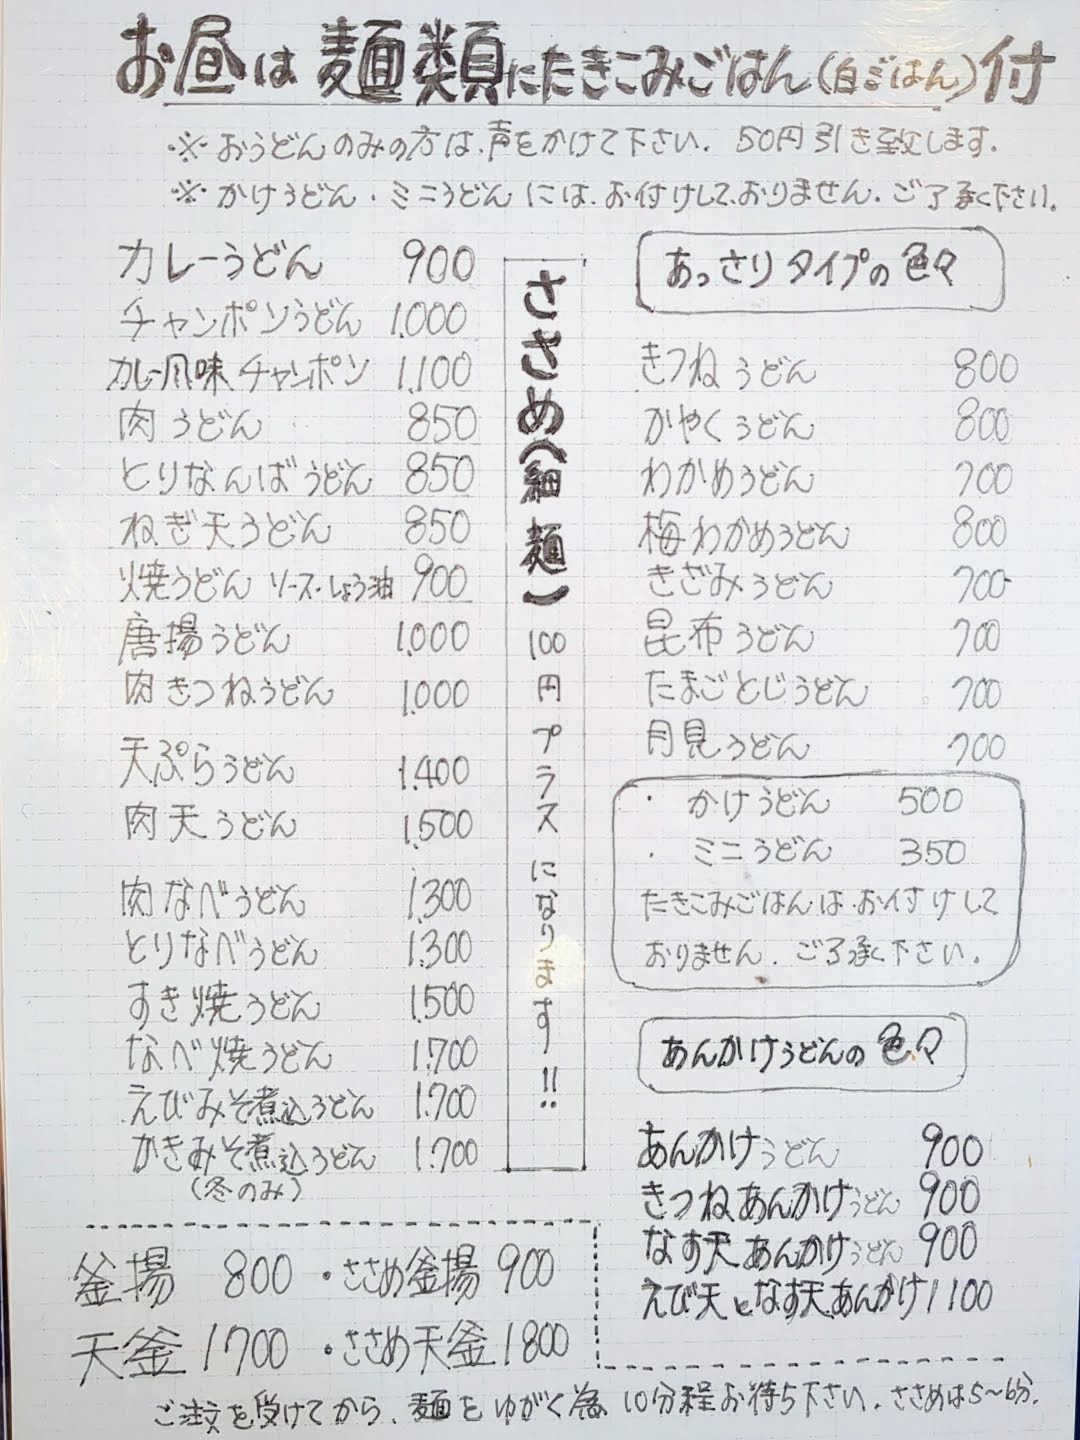 お昼は麺類にたきこみごはん(白ごはん)付
※おうどんのみの方は、声をかけて下さい。50円引き致します。
※かけうどん・ミニうどんには、お付けしておりません。ご了承く下さい。
カレーうどん 900
チャンポンうどん 1,000
カレー風味チャンポン 1,100
肉うどん 850
とりなんばうどん 850
ねぎ天うどん 850
焼うどん ソース・しょう油 900
唐揚うどん 1,000
肉きつねうどん 1,000
天ぷらうどん 1,400
肉天うどん 1,500
肉なべうどん 1,300
とりなべうどん 1,300
すき焼うどん 1,500
なべ焼うどん 1,700
えびみそ煮込うどん 1,700
かきみそ煮込うどん 1,700
(冬のみ)
ささめ(細麺)100円プラスになります!!
あっさりタイプの色々
きつねうどん 800
かやくうどん 800
わかめうどん 700
梅わかめうどん 800
きざみうどん 700
昆布うどん 700
たまごとじうどん 700
月見うどん 700
・かけうどん 500
・ミニうどん 350
たきこみごはんは、お付けして
おりません。ご了承く下さい。
あんかけうどんの色々
あんかけうどん 900
きつねあんかけうどん 900
なす天あんかけうどん 900
えび天となす天あんかけ 1100
釜揚 800 ・ささめ釜揚 900
天釜 1700 ・ささめ天釜 1800
ご注文を受けてから、麺をゆがく為10分程お待ち下さい。ささめは5~6分。